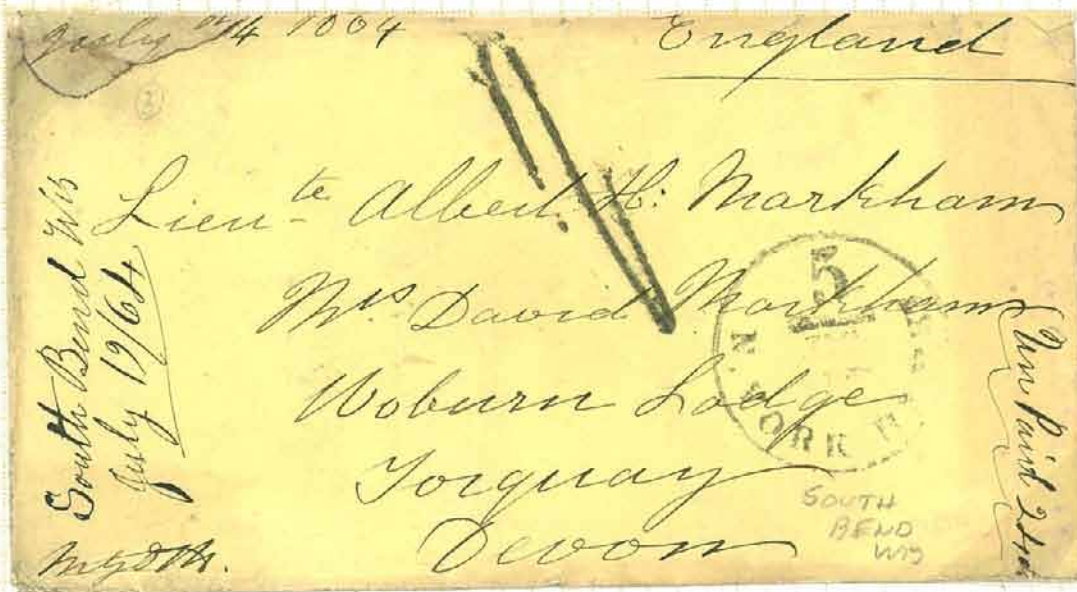 July 14 1864
England
Lieu-te Albert H: Markham
Mrs David Markham
Woburn Lodge
Torquay
Devon
South Bend Wis
July 19/64
Un Paid 24
5
N. YORK
SOUTH
BEND
WIS
2